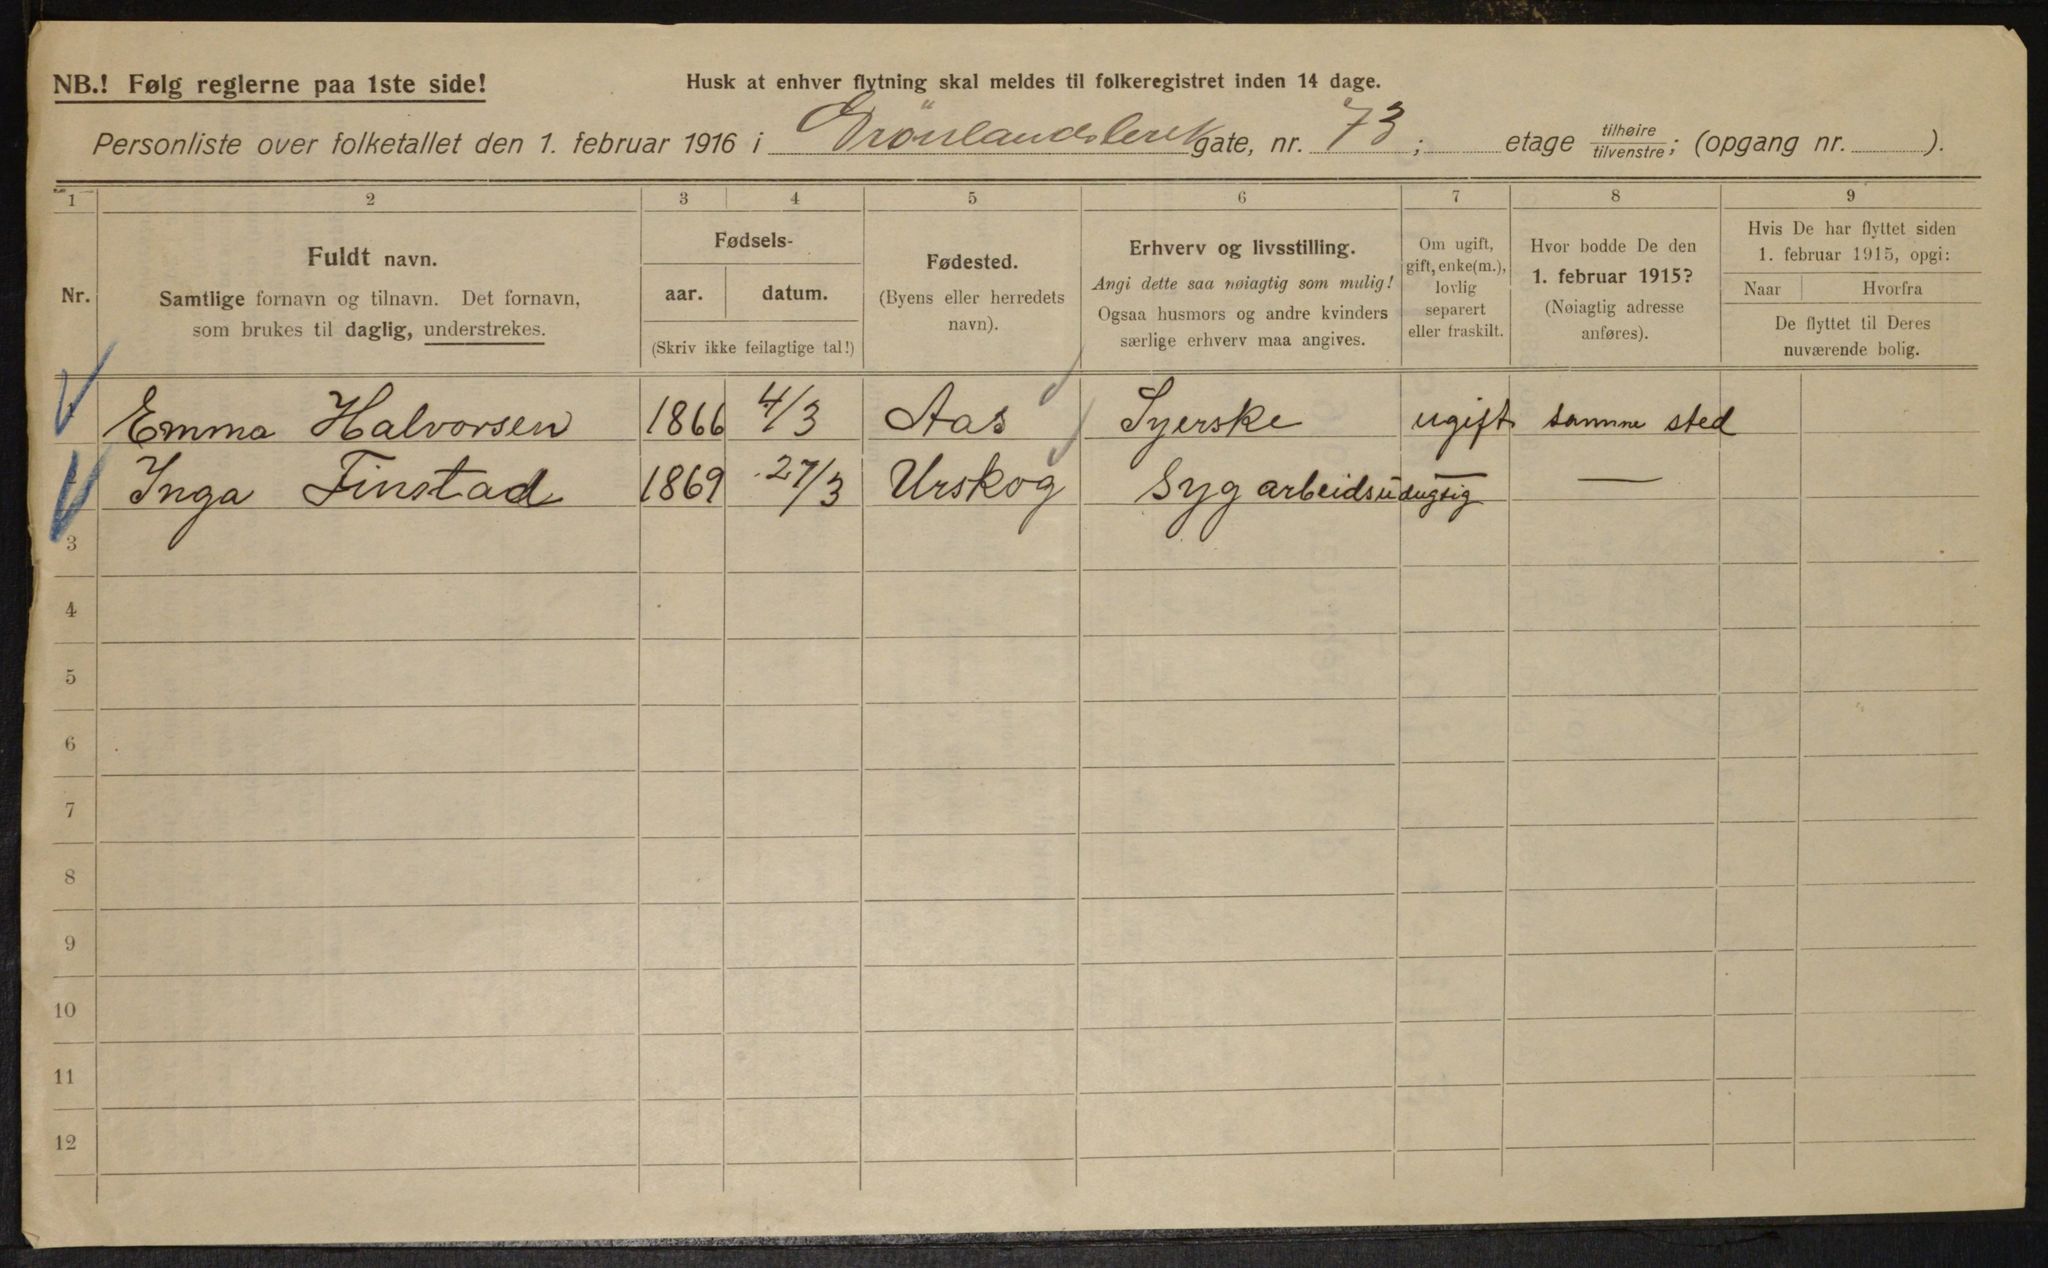 NB.! Følg reglerne paa 1ste side!
Husk at enhver flytning skal meldes til folkeregistret inden 14 dage.
Personliste over folketallet den 1. februar 1916 i Grönlandsleret gate, nr. 73; etage tilhøire/tilvenstre; (opgang nr. ).
1 2 3 4 5 6 7 8 9
Nr.
Fuldt navn.
Samtlige fornavn og tilnavn. Det fornavn,
som brukes til daglig, understrekes.
Fødsels-
aar. datum.
(Skriv ikke feilagtige tal!)
Fødested.
(Byens eller herredets
navn).
Erhverv og livsstilling.
Angi dette saa nøiagtig som mulig!
Ogsaa husmors og andre kvinders
særlige erhverv maa angives.
Om ugift,
gift, enke(m.),
lovlig
separert
eller fraskilt.
Hvor bodde De den
1. februar 1915?
(Nøiagtig adresse
anføres).
Hvis De har flyttet siden
1. februar 1915, opgi:
Naar Hvorfra
De flyttet til Deres
nuværende bolig.
Emma Halvorsen 1866 4/3 Aas Syerske ugift samme sted
Inga Finstad 1869 27/3 Urskog Syg arbeidsudygtig — —
3
4
5
6
7
8
9
10
11
12